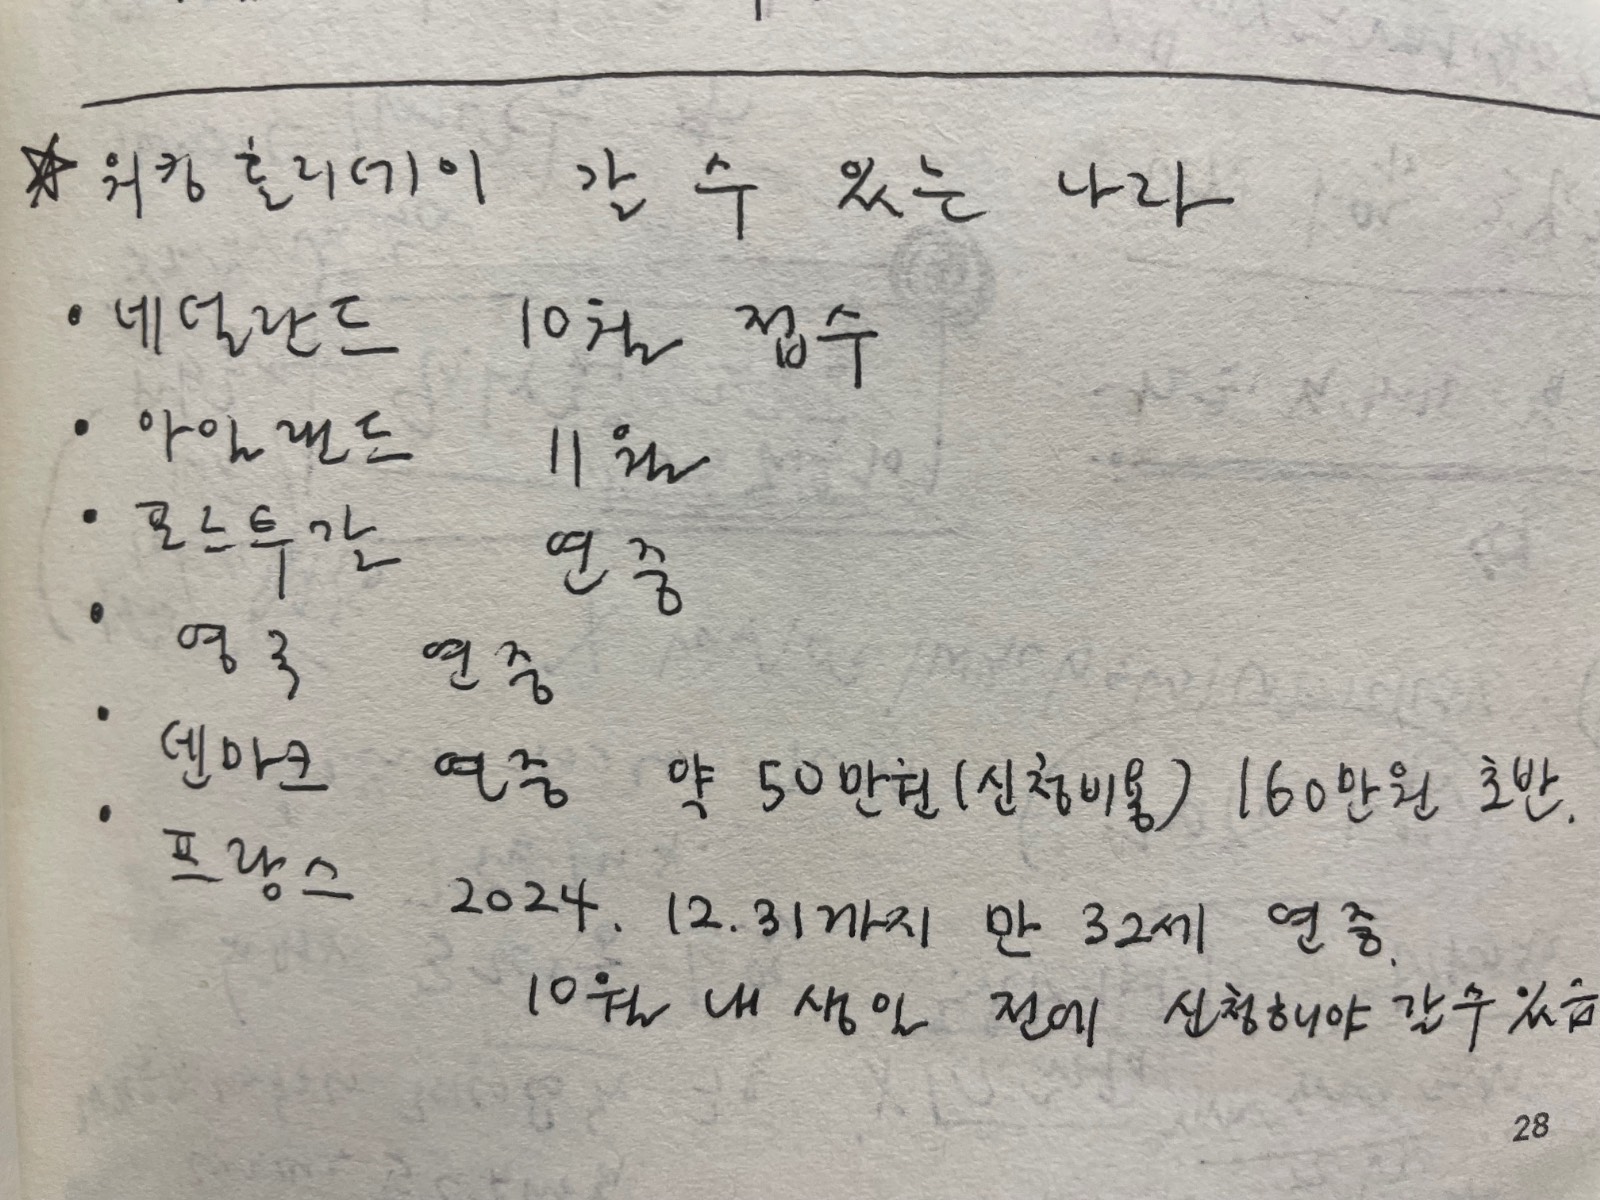 ☆ 워킹 홀리데이 갈 수 있는 나라
• 네덜란드 10월 접수
• 아일랜드 11월
• 포르투갈 연중
• 영국 연중
• 덴마크 연중 약 50만원(신청비용) 160만원 초반.
• 프랑스 2024. 12.31까지 만 32세 연중.
10월 내 생일 전에 신청해야 갈 수 있음
28